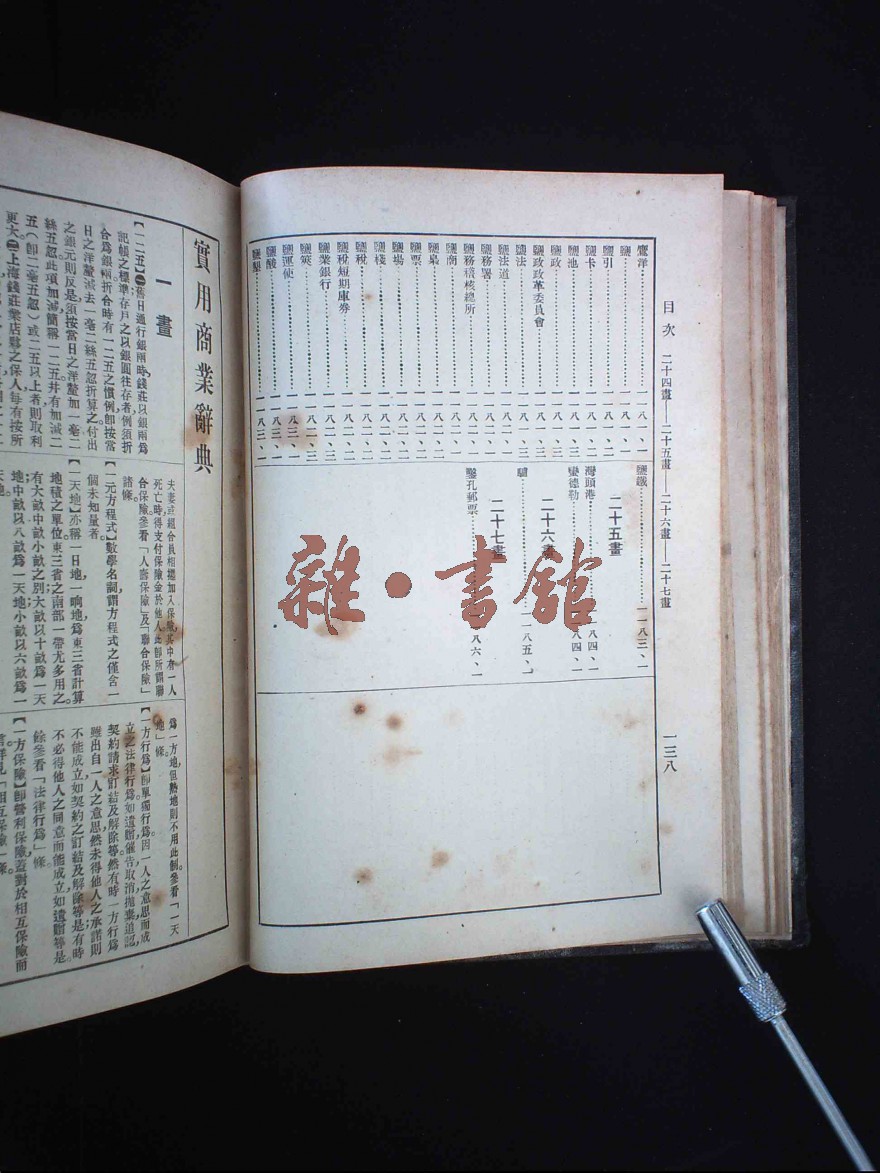 目次 二十四畫——二十五畫——二十六畫——二十七畫
一三八
鷹洋……一一八一、一
鹽……一一八一、一
鹽引……一一八一、二
鹽卡……一一八一、二
鹽池……一一八一、二
鹽政……一一八一、三
鹽政改革委員會……一一八一、三
鹽法
鹽法道
鹽務署
鹽務稽核總所
鹽商
鹽梟
鹽票
鹽場
鹽棧
鹽稅
鹽稅短期庫券
鹽業銀行
鹽筴
鹽運使
鹽酸
鹽墾
鹽鐵……一一八三、一
二十五畫
灣頭港
二十六畫
驢……一一八五、一
二十七畫
鑿孔郵票
雜·書館
實用商業辭典
一畫
【一二五】㊀舊日通行銀兩時，錢莊以銀兩爲
記帳之標準，存戶之以銀圓往存者，例須折
合爲銀兩。折合時有一二五之慣例，卽按當
日之洋釐減去一毫二絲五忽折算之。付出
之銀元則反是，須按當日之洋釐加一毫二
絲五忽。此項加減，簡稱一二五。幷有加減二
五（卽二毫五忽）或二五以上者，則取利
更大。㊁上海錢莊業店夥之保人，每有按所
夫妻或組合員相攜加入保險，其中有一人
死亡時，得支付保險金於他人。此卽所謂聯
合保險。參看「人壽保險」及「聯合保險」
諸條。
【一元方程式】數學名詞。謂方程式之僅含一
個未知量者。
【一天地】亦稱一日地，一晌地。爲東三省計算
地積之單位，東三省之南部一帶尤多用之。
有大畝中畝小畝之別。大畝以十畝爲一天
地；中畝以八畝爲一天地；小畝以六畝爲一
天地。
爲一方地，但熟地則不用此制。參看「一天
地」條。
【一方行爲】卽單獨行爲。因一人之意思而成
立之法律行爲，如遺贈、催告、取消、拋棄、追認、
契約請求訂結及解除等。然有時一方行爲
雖出自一人之意思，然未得他人之承諾，則
不能成立，如契約之訂結及解除等是；有時
不必得他人之同意而能成立，如遺贈等是。
餘參看「法律行爲」條。
【一方保險】卽營利保險，蓋對於相互保險而
言。詳見「相互保險」條。